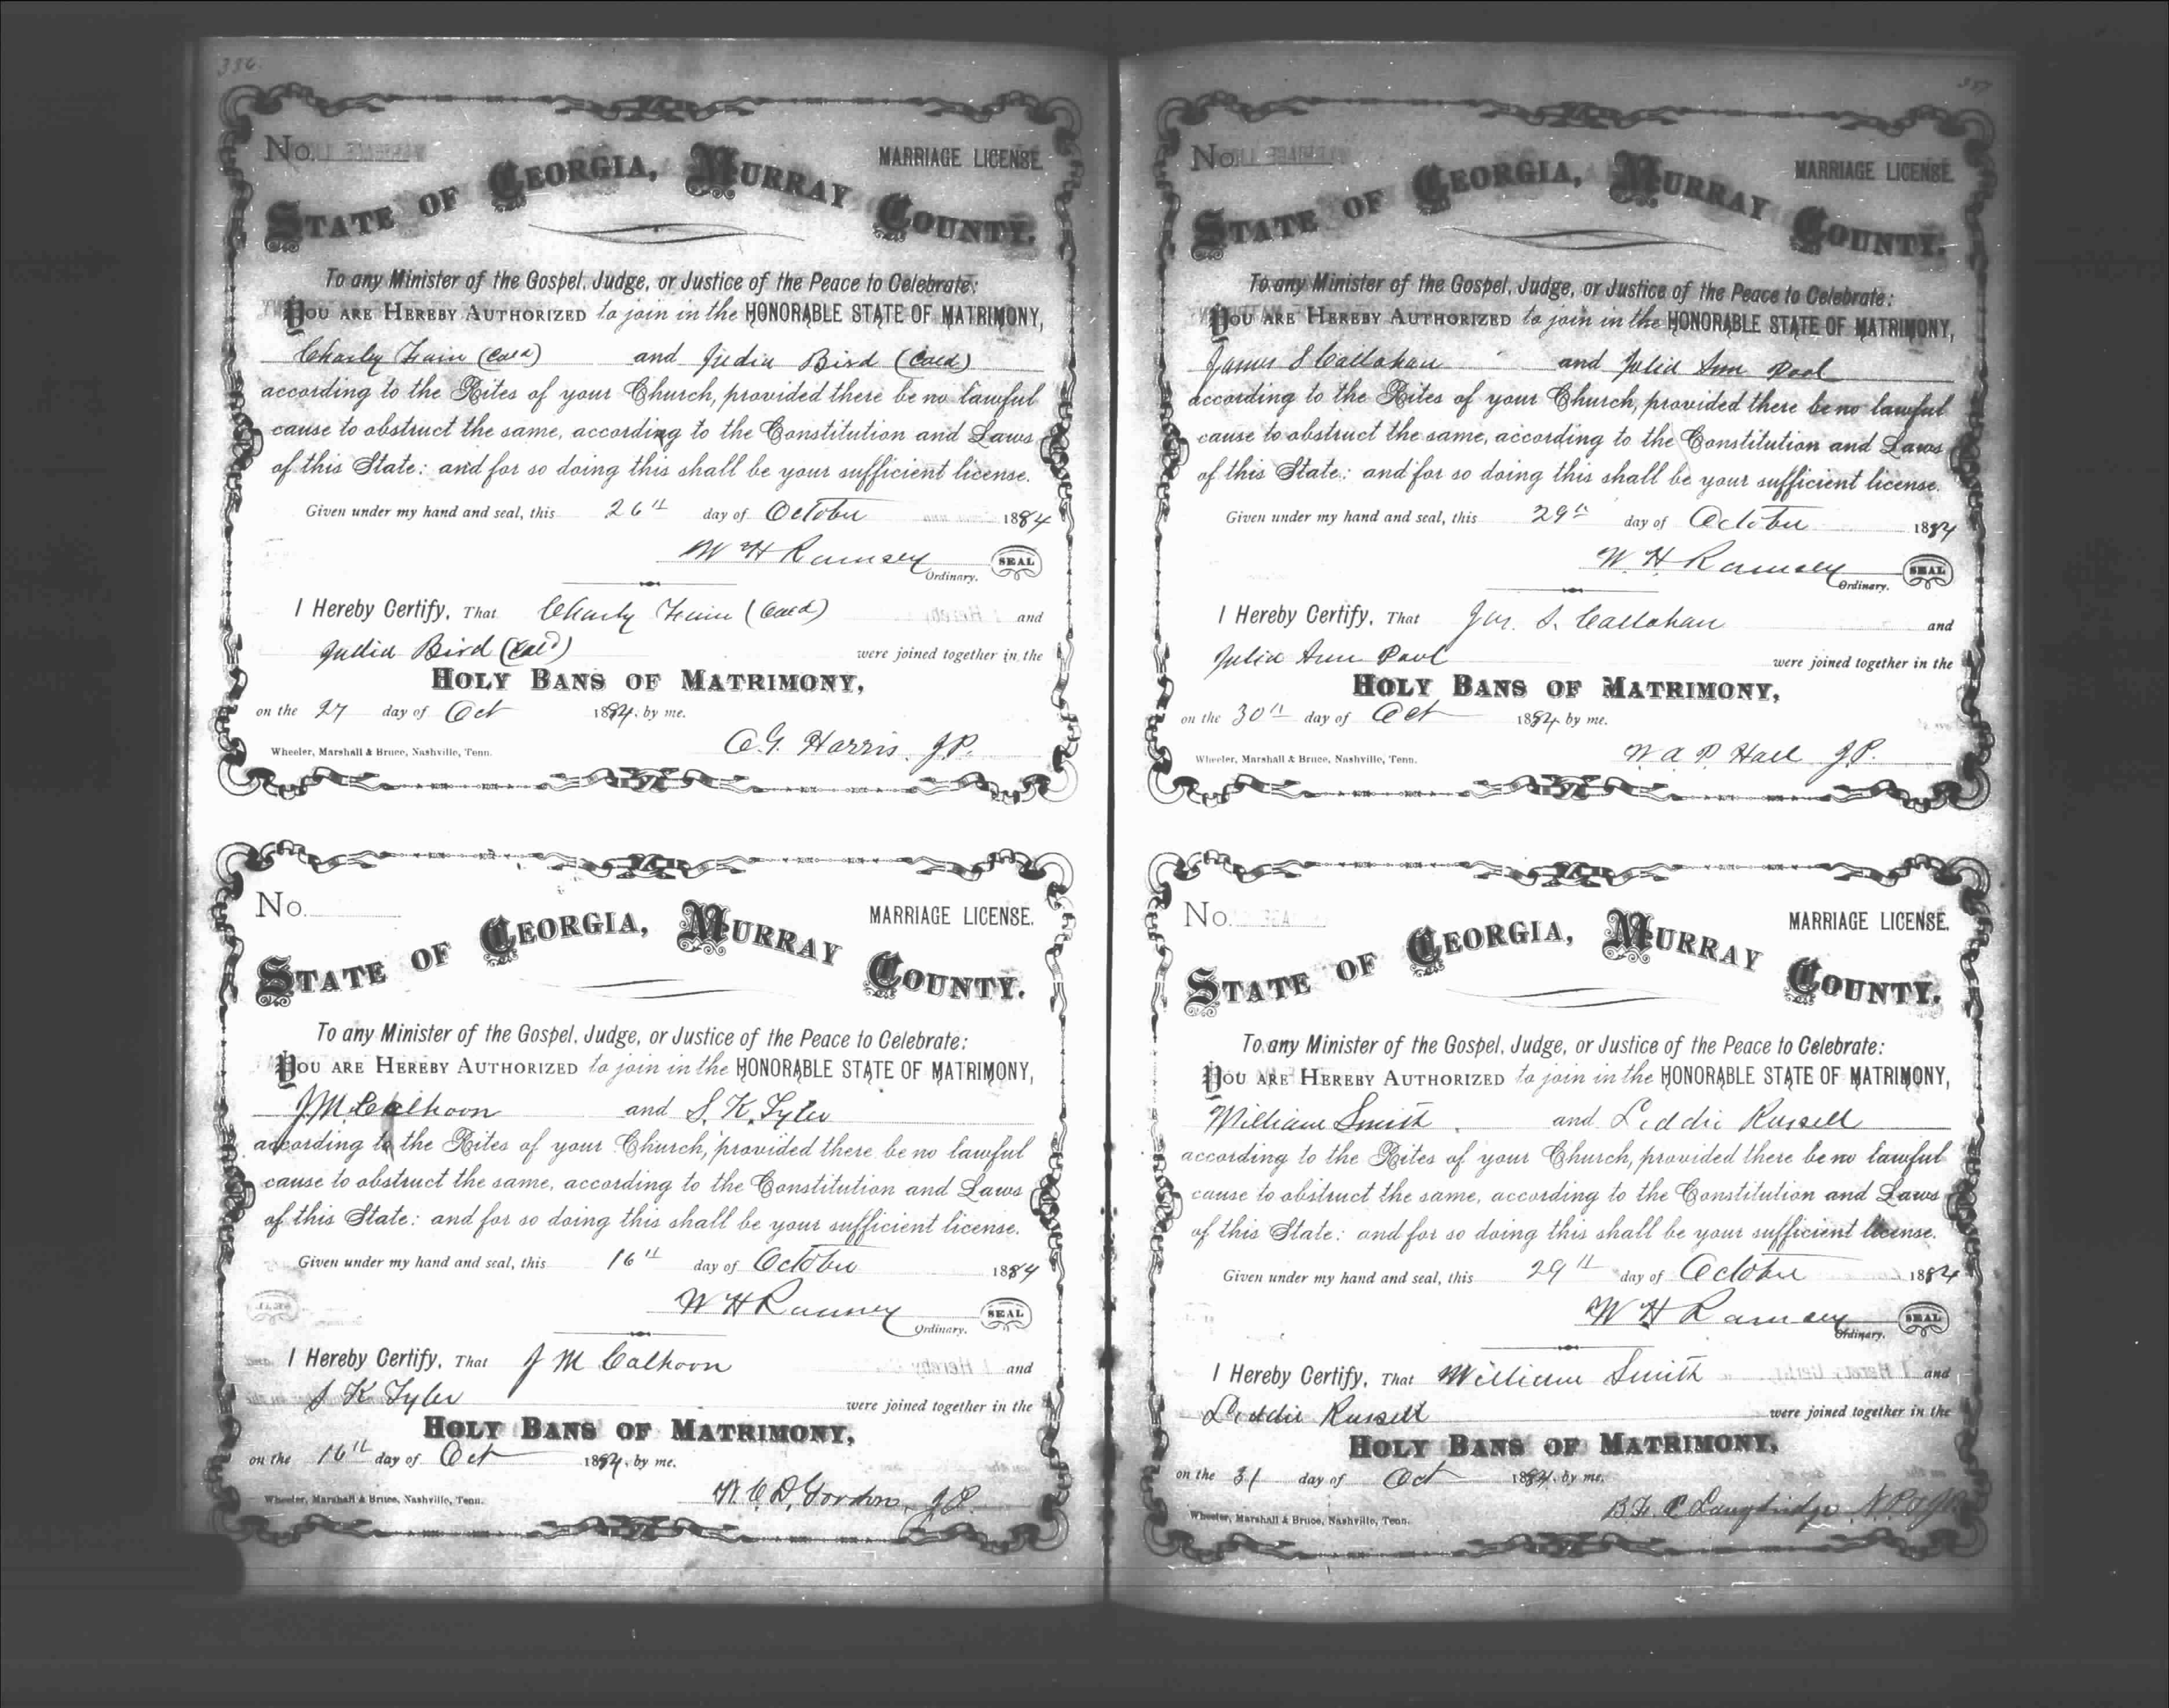 336.
No.
MARRIAGE LICENSE.
STATE OF GEORGIA, MURRAY COUNTY.
To any Minister of the Gospel, Judge, or Justice of the Peace to Celebrate:
YOU ARE HEREBY AUTHORIZED to join in the HONORABLE STATE OF MATRIMONY,
Charly Fain (Cold) and Judia Bird (Cold)
according to the Rites of your Church, provided there be no lawful
cause to obstruct the same, according to the Constitution and Laws
of this State: and for so doing this shall be your sufficient license.
Given under my hand and seal, this 26th day of October 1884
W H Ramsey SEAL
Ordinary.
I Hereby Certify, That Charly Fain (Cold) and
Judia Bird (Cold) were joined together in the
HOLY BANS OF MATRIMONY,
on the 27 day of Oct 1884, by me.
Wheeler, Marshall & Bruce, Nashville, Tenn. Harris JP.
No.
MARRIAGE LICENSE.
STATE OF GEORGIA, MURRAY COUNTY.
To any Minister of the Gospel, Judge, or Justice of the Peace to Celebrate:
YOU ARE HEREBY AUTHORIZED to join in the HONORABLE STATE OF MATRIMONY,
J M Calhoon and S. K. Tyler
according to the Rites of your Church, provided there be no lawful
cause to obstruct the same, according to the Constitution and Laws
of this State: and for so doing this shall be your sufficient license.
Given under my hand and seal, this 16th day of October 1884
W H Ramsey SEAL
Ordinary.
I Hereby Certify, That J M Calhoon and
S K Tyler were joined together in the
HOLY BANS OF MATRIMONY,
on the 16th day of Oct 1884, by me.
Wheeler, Marshall & Bruce, Nashville, Tenn. Gordon, JP.
337
No.
MARRIAGE LICENSE.
STATE OF GEORGIA, MURRAY COUNTY.
To any Minister of the Gospel, Judge, or Justice of the Peace to Celebrate:
YOU ARE HEREBY AUTHORIZED to join in the HONORABLE STATE OF MATRIMONY,
James S Callahan and Julia Ann Pool
according to the Rites of your Church, provided there be no lawful
cause to obstruct the same, according to the Constitution and Laws
of this State: and for so doing this shall be your sufficient license.
Given under my hand and seal, this 29th day of October 1884
W. H. Ramsey SEAL
Ordinary.
I Hereby Certify, That Jas. S. Callahan and
Julia Ann Pool were joined together in the
HOLY BANS OF MATRIMONY,
on the 30th day of Oct 1884, by me.
Wheeler, Marshall & Bruce, Nashville, Tenn. W. A. P. Hall JP.
No.
MARRIAGE LICENSE.
STATE OF GEORGIA, MURRAY COUNTY.
To any Minister of the Gospel, Judge, or Justice of the Peace to Celebrate:
YOU ARE HEREBY AUTHORIZED to join in the HONORABLE STATE OF MATRIMONY,
William Smith and Liddie Russell
according to the Rites of your Church, provided there be no lawful
cause to obstruct the same, according to the Constitution and Laws
of this State: and for so doing this shall be your sufficient license.
Given under my hand and seal, this 29th day of October 1884
W H Ramsey SEAL
Ordinary.
I Hereby Certify, That William Smith and
Liddie Russell were joined together in the
HOLY BANS OF MATRIMONY,
on the 31 day of Oct 1884, by me.
Wheeler, Marshall & Bruce, Nashville, Tenn.